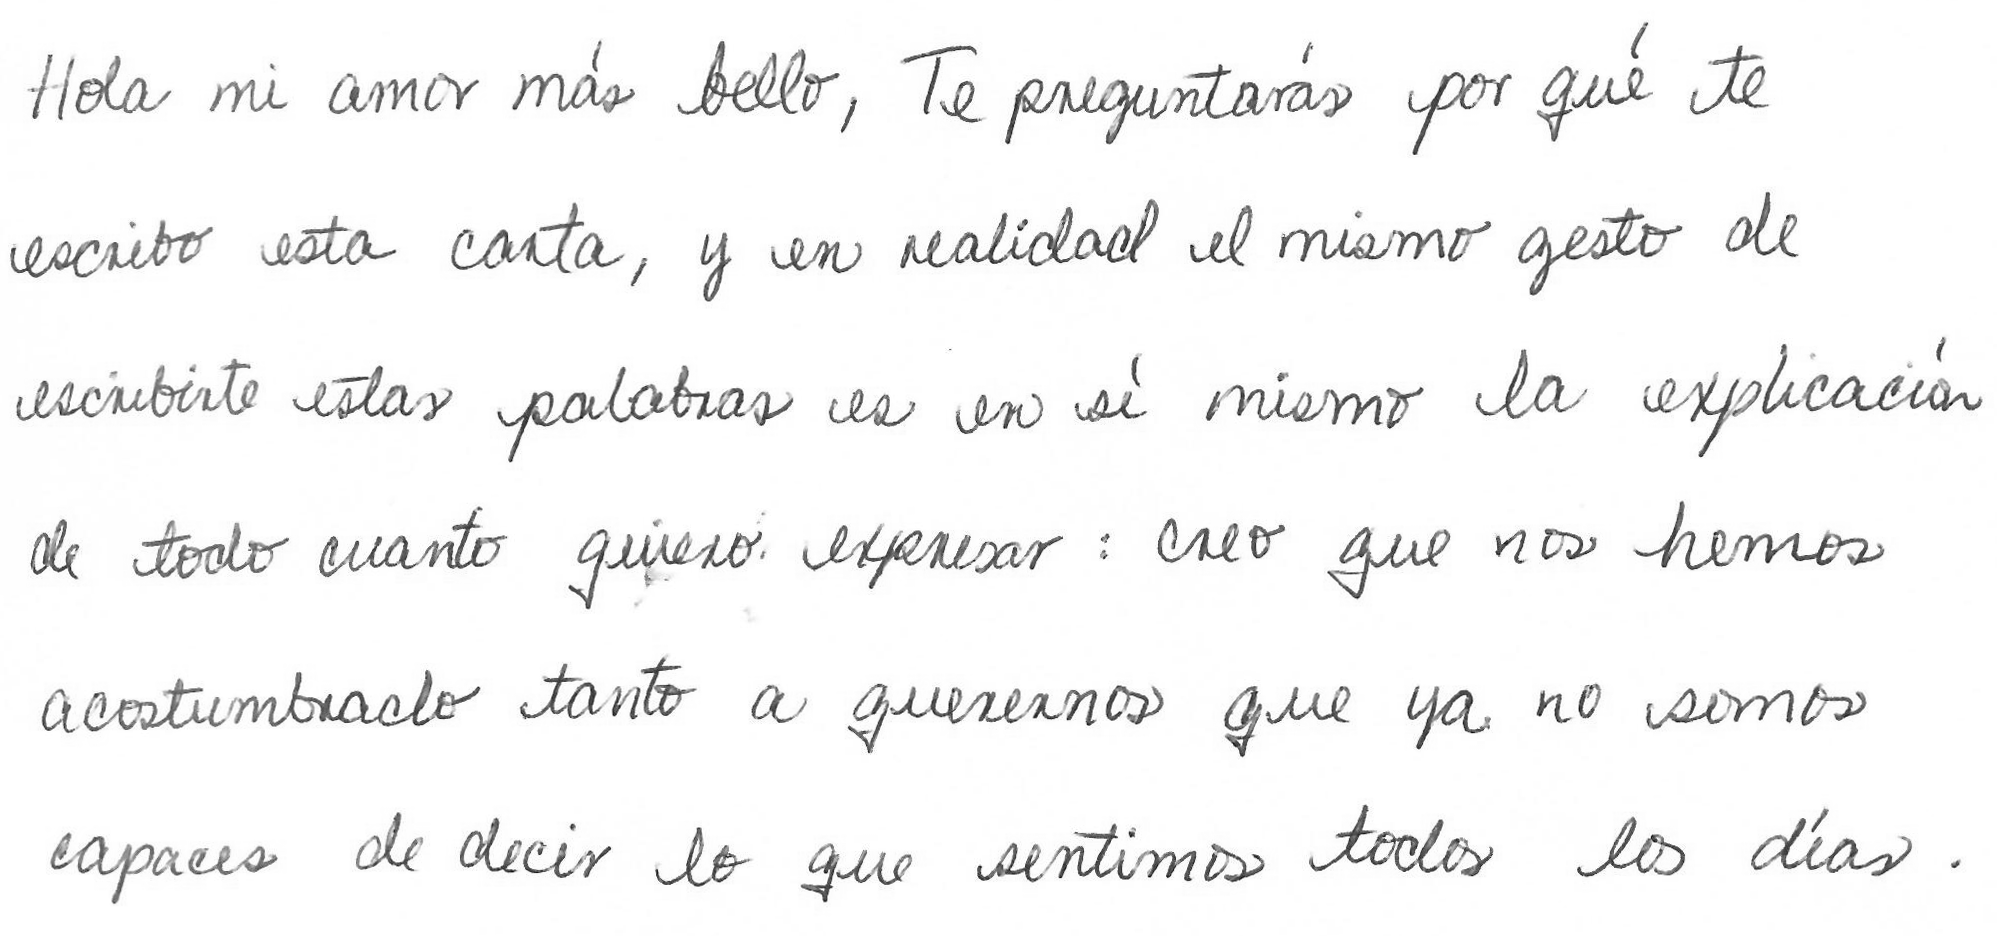 Hola mi amor más bello, Te preguntarás por qué te
escribo esta carta, y en realidad el mismo gesto de
escribirte estas palabras es en sí mismo la explicación
de todo cuanto quiero expresar: creo que nos hemos
acostumbrado tanto a querernos que ya no somos
capaces de decir lo que sentimos todos los días.